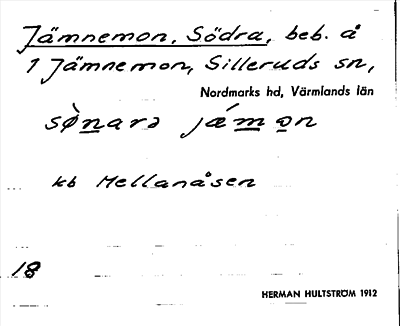 Jämnemon, Södra, beb. å
1 Jämnemon, Silleruds sn,
Nordmarks hd, Värmlands län
sø̀narə jǽmon
kb Mellanåsen
18
HERMAN HULTSTRÖM 1912